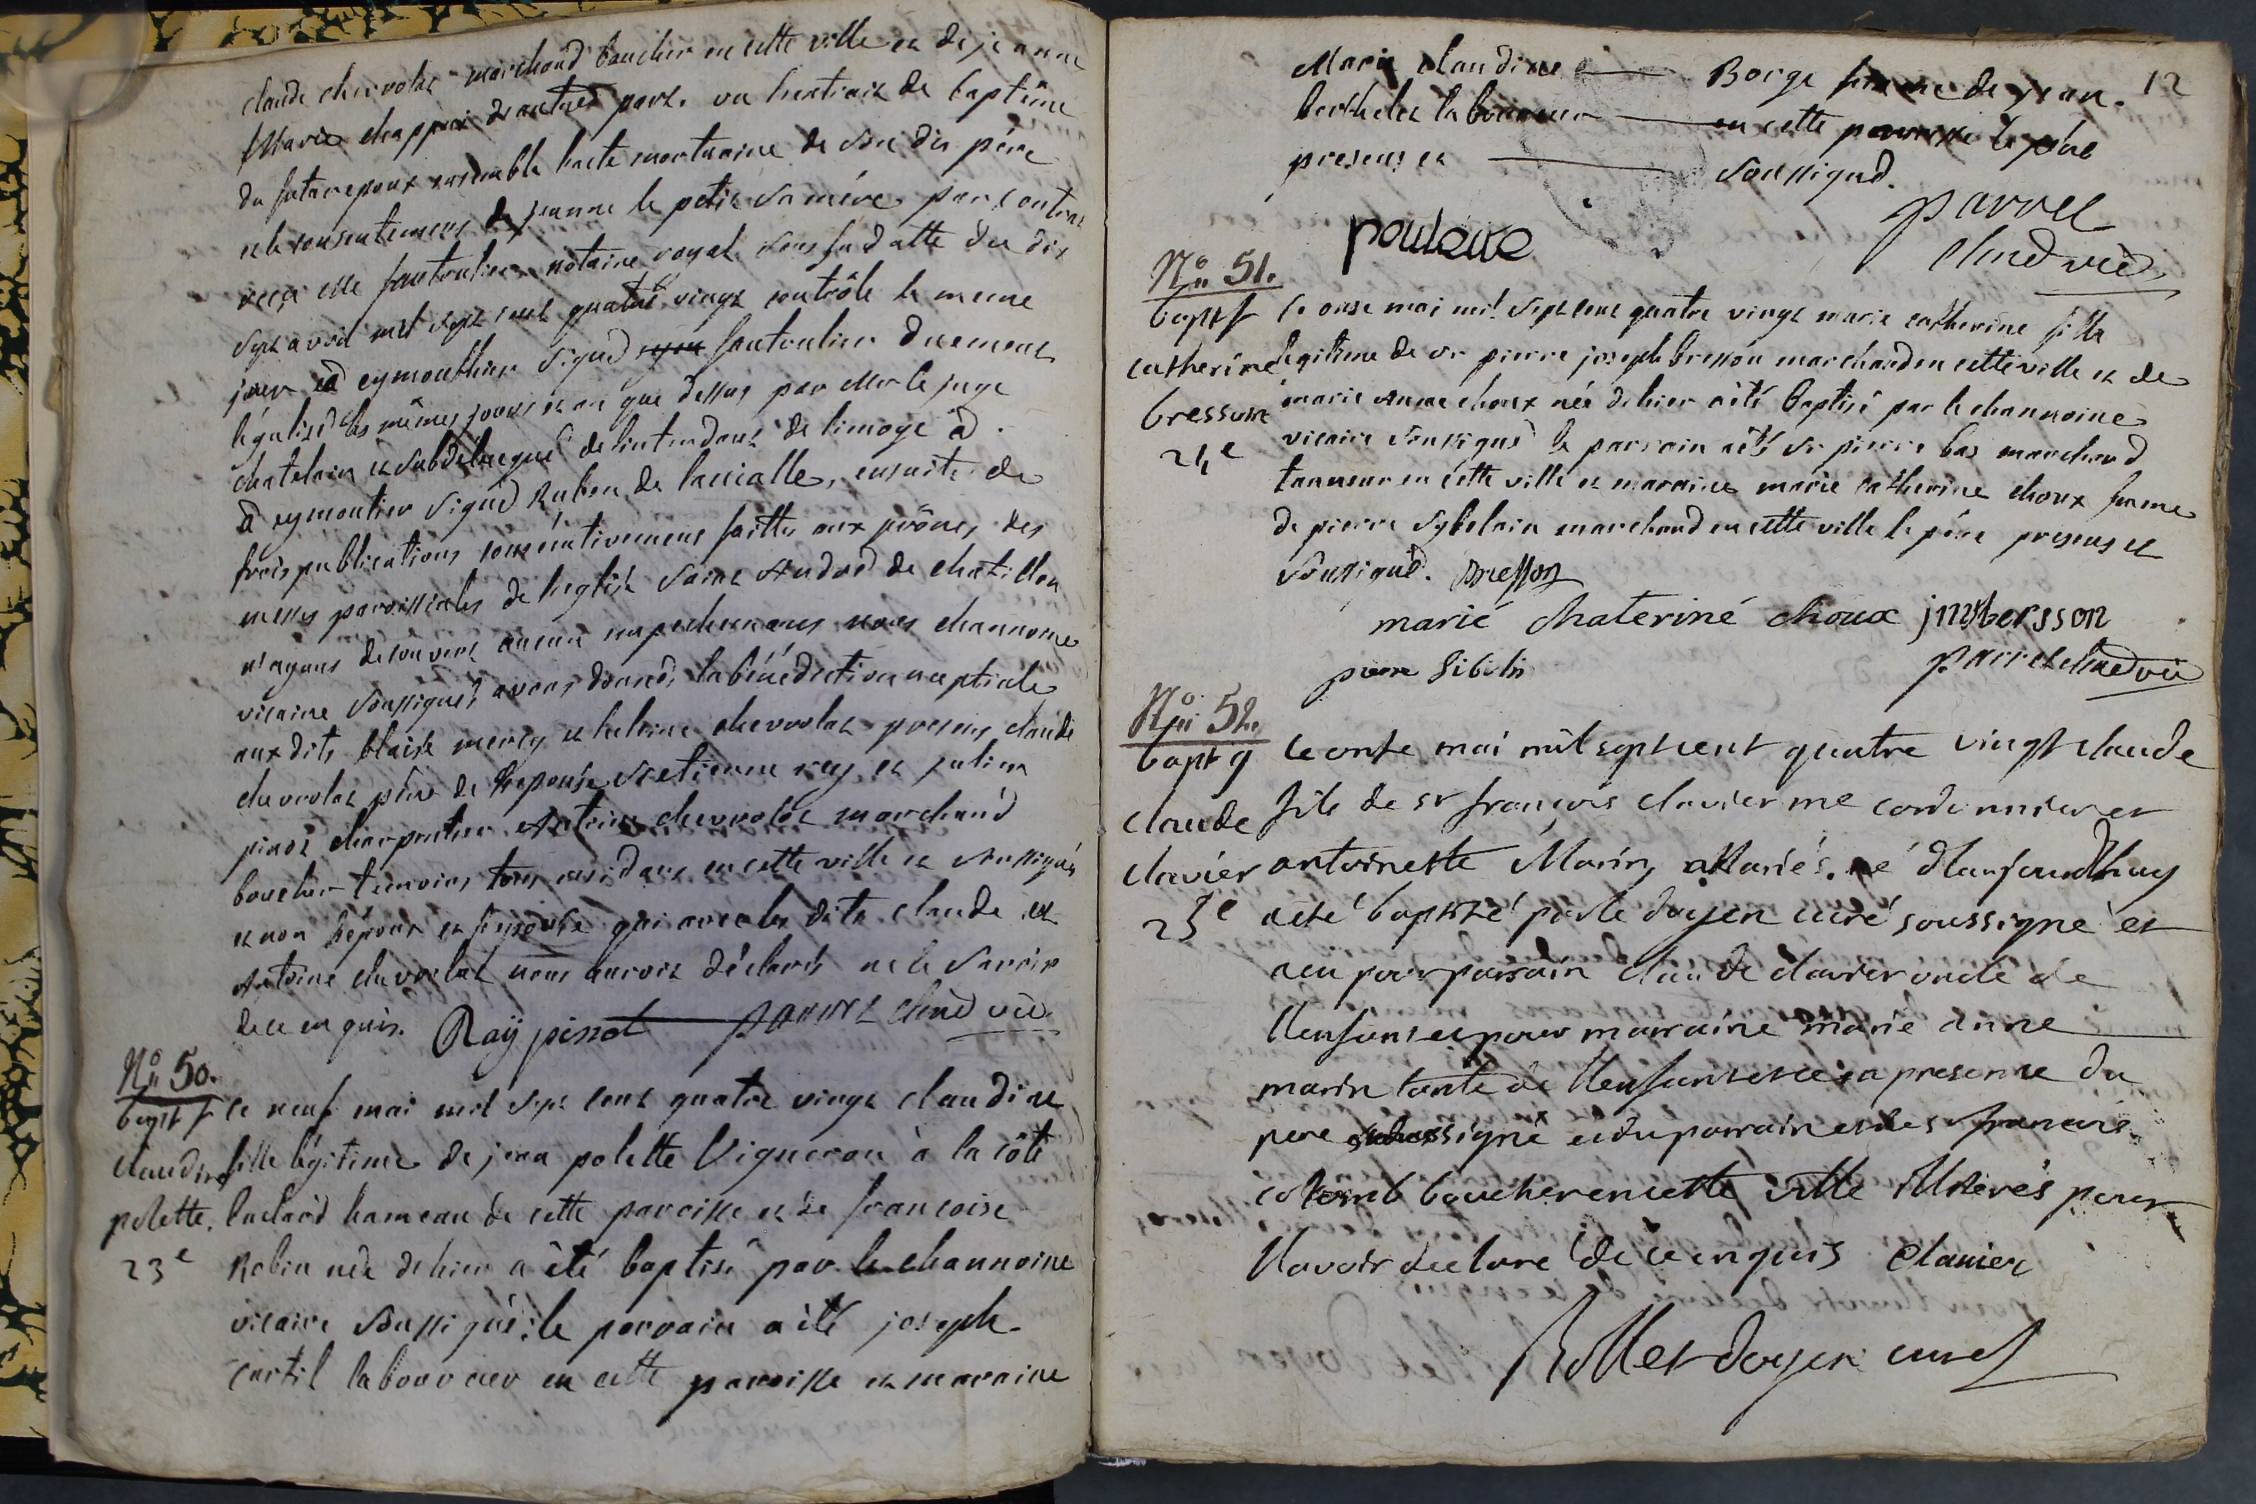 claude chervolas marchand boucher en cette ville et de jeanne
Marie chappuis d'autres part. vu l'extrait de baptême
du futur epoux ensemble l'acte mortuaire de son dit père
et le consentement de jeanne le petit sa mère par contrat
reçu notaire royal sous la datte du dix
sept avril mil sept cent quatre vingt contrôle le meme
jour à eymouthier signé duement
légalisé les mêmes jours et an que dessus par Mr le juge
chatelain et subdélégué de l'intendant de limoge à
à eymoutier signé Ruben de ensuite de
trois publications consécutivement faittes aux prônes des
messes paroissiales de l'eglise saint André de chatillon
n'ayant découvert aucun nous channoine
vicaire soussigné, avons donné la bénédiction nuptiale
aux dits blaise mercy et chervolas presens claude
chervolas père de l'epouse etienne rey et julien
pinot charpentier Antoine chervolas marchand
boucher temoins tous residans en cette ville et soussignés
et non l'epoux et l'epouse qui avec les dits claude et
Antoine chervolas nous auroit déclarés ne le savoir
de ce enquis. Raÿ pinot parret chne vic
No 50.
bapt f le neuf mai mil sept cent quatre vingt claudine
claudine fille légitime de jean polette Vigneron à la côte
polette. hameau de cette paroisse et de francoise
23e Robin née d'hier a été baptisé par le channoine
vicaire soussigné; le parrain a été joseph
curtil laboureur en cette paroisse et maraine
12
Marie claudine Borge femme de jean
berthelet laboureur en cette paroisse le père
present et soussigné.
parret
poulette chne vic
No 51.
bapt f le onse mai mil sept cent quatre vingt marie catherine fille
catherine légitime de sr pierre joseph bresson marchand en cette ville et de
bresson marie anne choux née d'hier a été baptisé par le channoine
24e vicaire soussigné le parrain a été sr pierre bas marchand
tanneur en cette ville et maraine marie catherine choux femme
de pierre marchand en cette ville le père present et
soussigné. Bresson
marié chateriné choux
pierre parret chne vic
No 52.
bapt g le onse mai mil sept cent quatre vingt claude
claude fils de sr françois clavier me cordonnier et
clavier antoinette Marin Mariés. né d'aujourd'huy
25e a eté baptizé par le doyen curé soussigné et
a eu pour parrain claude clavier oncle de
l'enfant et pour marraine marie anne
marin tante de l'enfant et ce en presence du
pere soussigné et du parrain et de sr françois
colomb boucher en cette ville illiterés pour
l'avoir declaré de ce enquis clavier
doyen curé